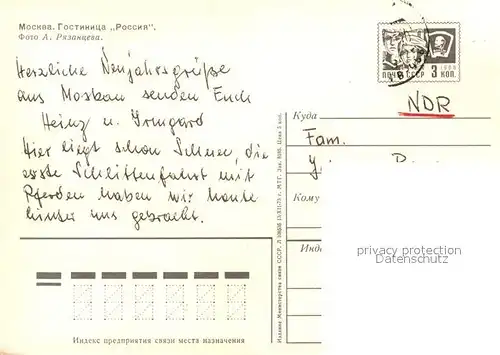 Москва. Гостиница „Россия".
Фото А. Рязанцева.
Herzliche Neujahrsgrüße
aus Moskau senden Euch
Heinz u. Irmgard
Hier liegt schon Schnee, die
erste Schlittenfahrt mit
Pferden haben wir heute
hinter uns gebracht.
1966
ПОЧТА СССР 3 КОП.
NDR
Куда
Fam.
y. D.
Кому
privacy protection
Datenschutz
Индекс предприятия связи места назначения
Издание Министерства связи СССР.